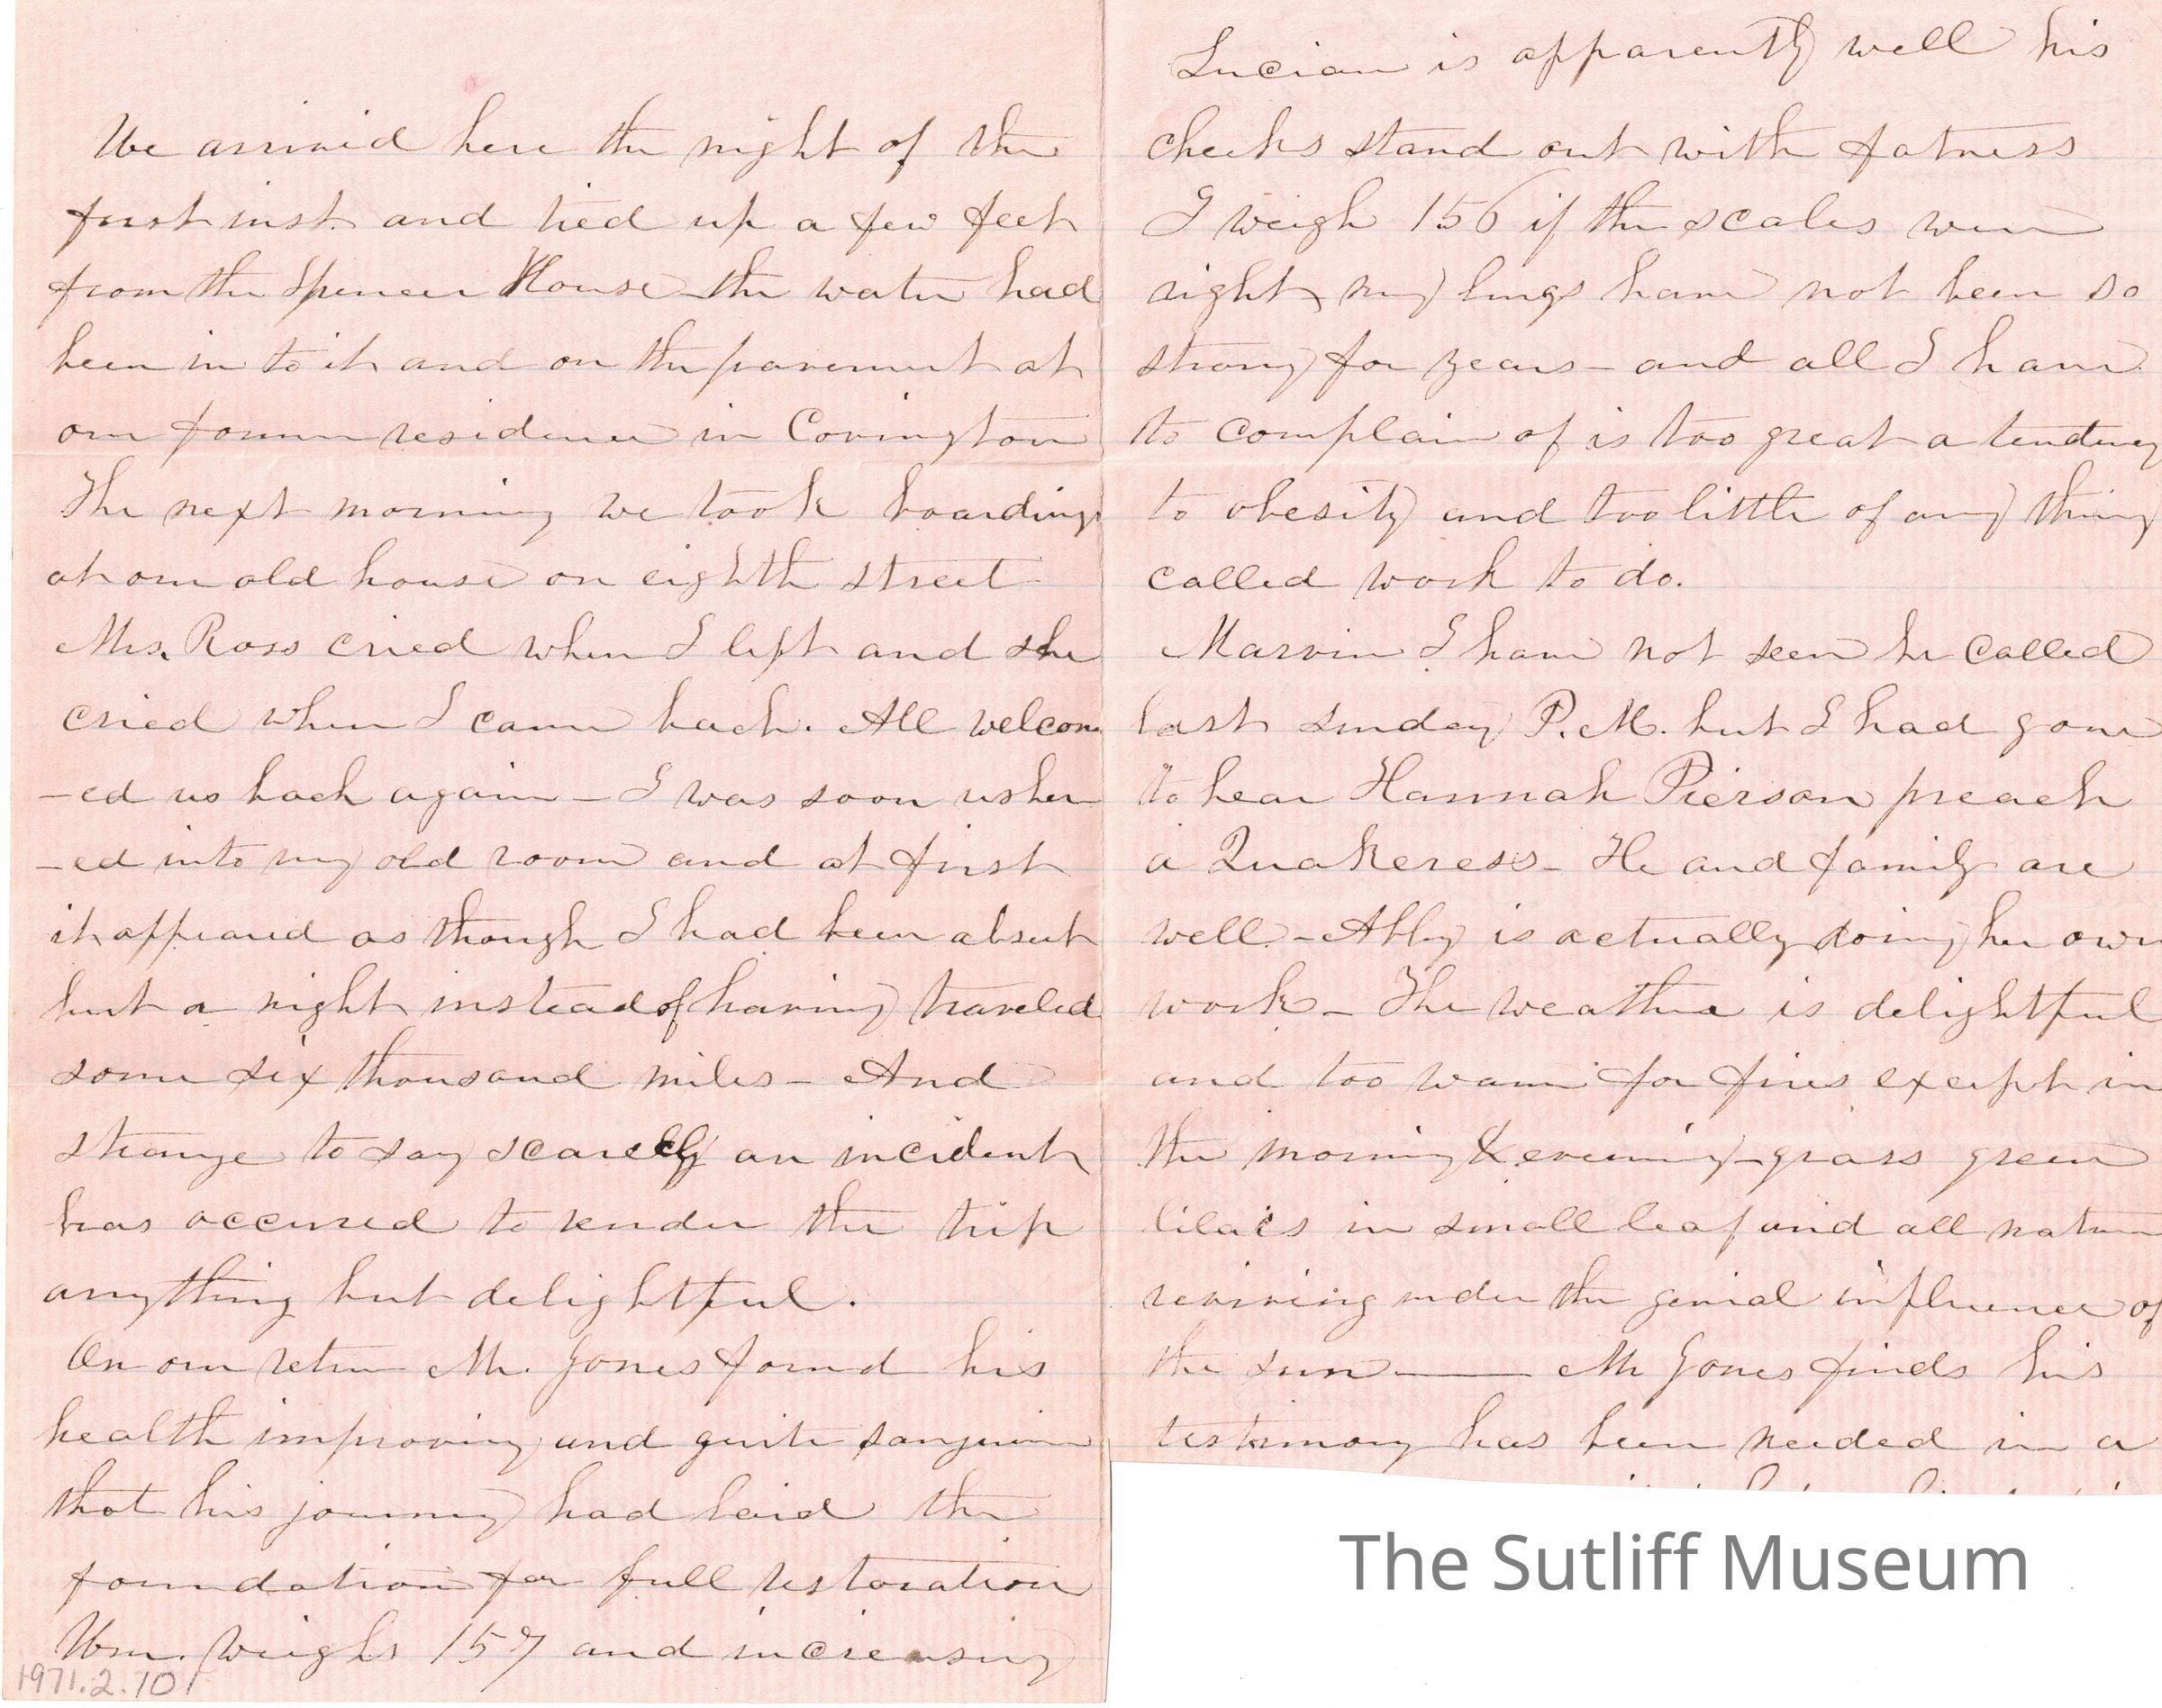 We arrived here the night of the
first inst. and tied up a few feet
from the Spencer House the water had
been in to it and on the pavement at
our former residence in Covington
The next morning we took boarding
at our old house on eighth street
Mrs. Ross cried when I left and she
cried when I came back. All welcom
-ed us back again - I was soon usher
-ed into my old room and at first
it appeared as though I had been absent
but a night instead of having traveled
some six thousand miles - And
strange to say scarcely an incident
has occured to render the trip
anything but delightful.
On our return Mr. Jones found his
health improving and quite sanguine
that his journey had laid the
foundation for full restoration
Wm. weighs 157 and increasing
1971.2.101
Lucian is apparently well his
cheeks stand out with fatness
I weigh 156 if the scales were
right, my lungs have not been so
strong for years - and all I have
to complain of is too great a tendency
to obesity and too little of any thing
called work to do.
Marvin I have not seen he called
last Sunday P.M. but I had gone
to hear Hannah Pierson preach
a Quakeress - He and family are
well - Abby is actually doing her own
work - The weather is delightful
and too warm for fires except in
the morning & evening - grass green
lilacs in small leaf and all nature
reviving under the genial influence of
the sun —— Mr Jones finds his
testimony has been needed in a
The Sutliff Museum